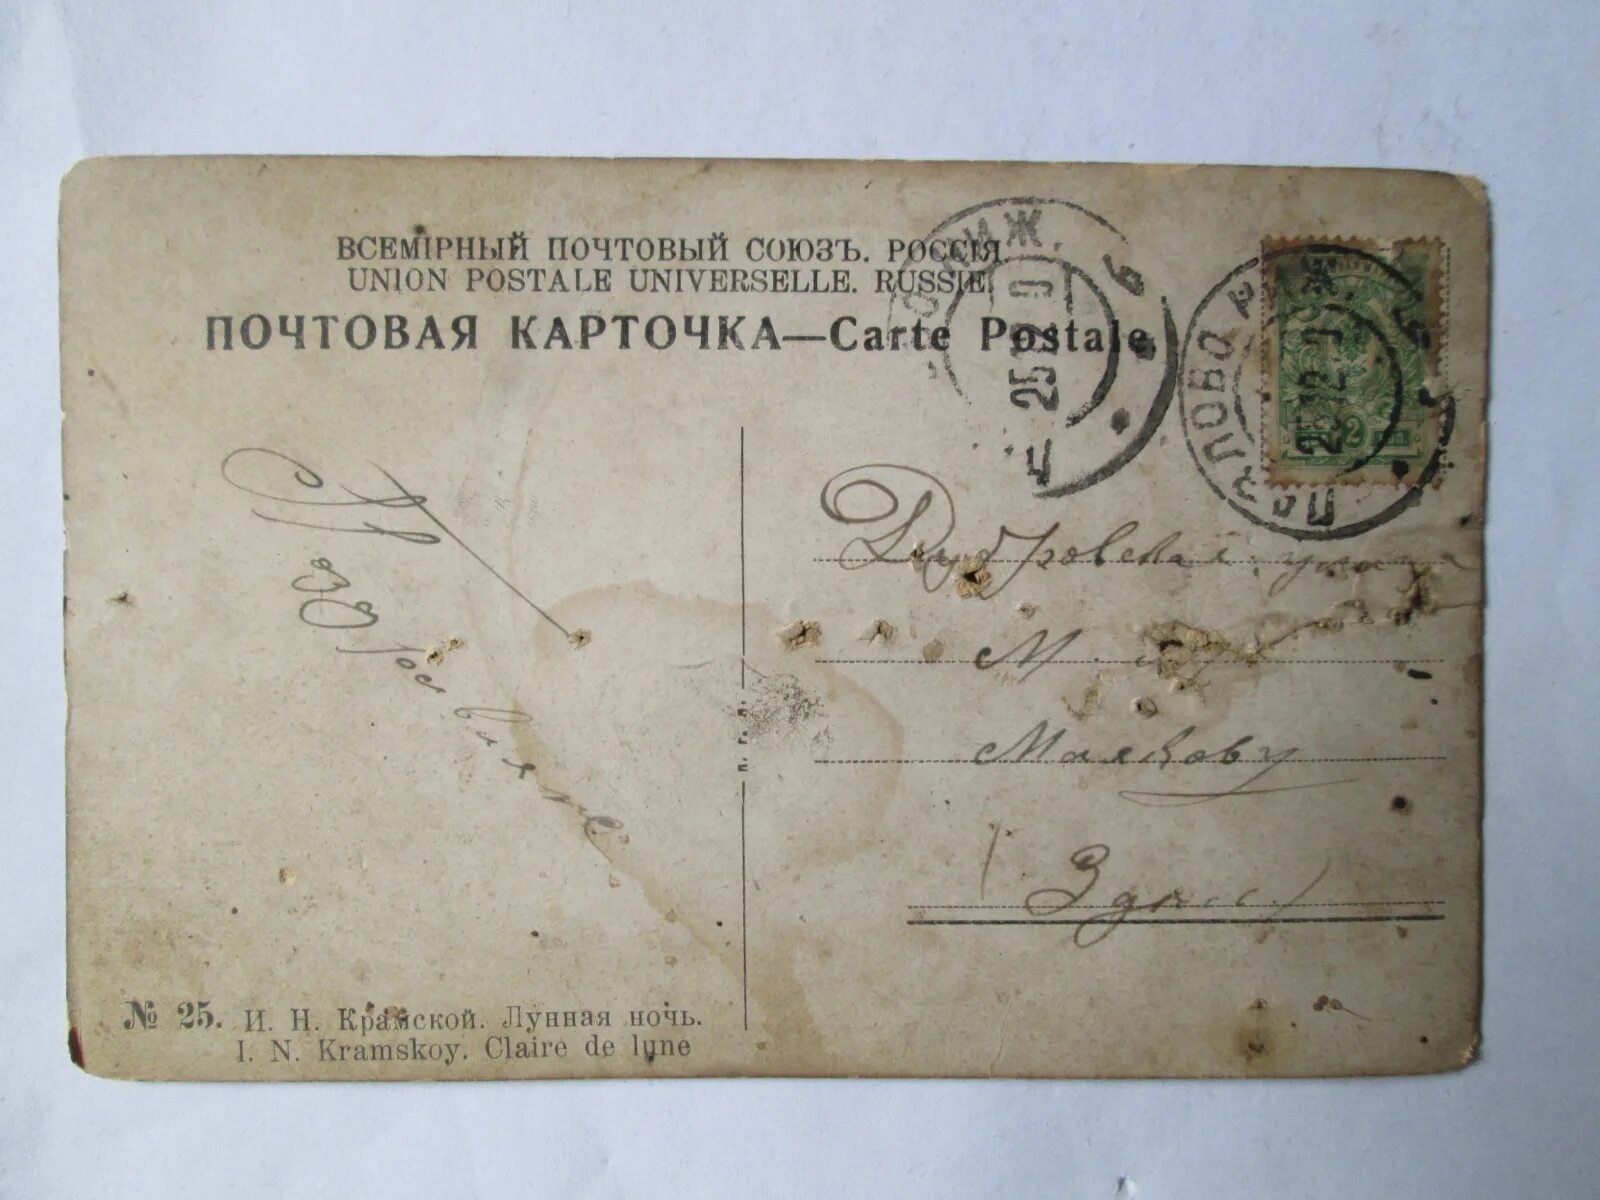 ВСЕМІРНЫЙ ПОЧТОВЫЙ СОЮЗЪ. РОССІЯ.
UNION POSTALE UNIVERSELLE. RUSSIE.
ПОЧТОВАЯ КАРТОЧКА—Carte Postale
ПАВЛОВО НИЖ.
25 12
2
Дубровская улица
М.
Маякову
(Здесь)
№ 25. И. Н. Крамской. Лунная ночь.
I. N. Kramskoy. Claire de lune